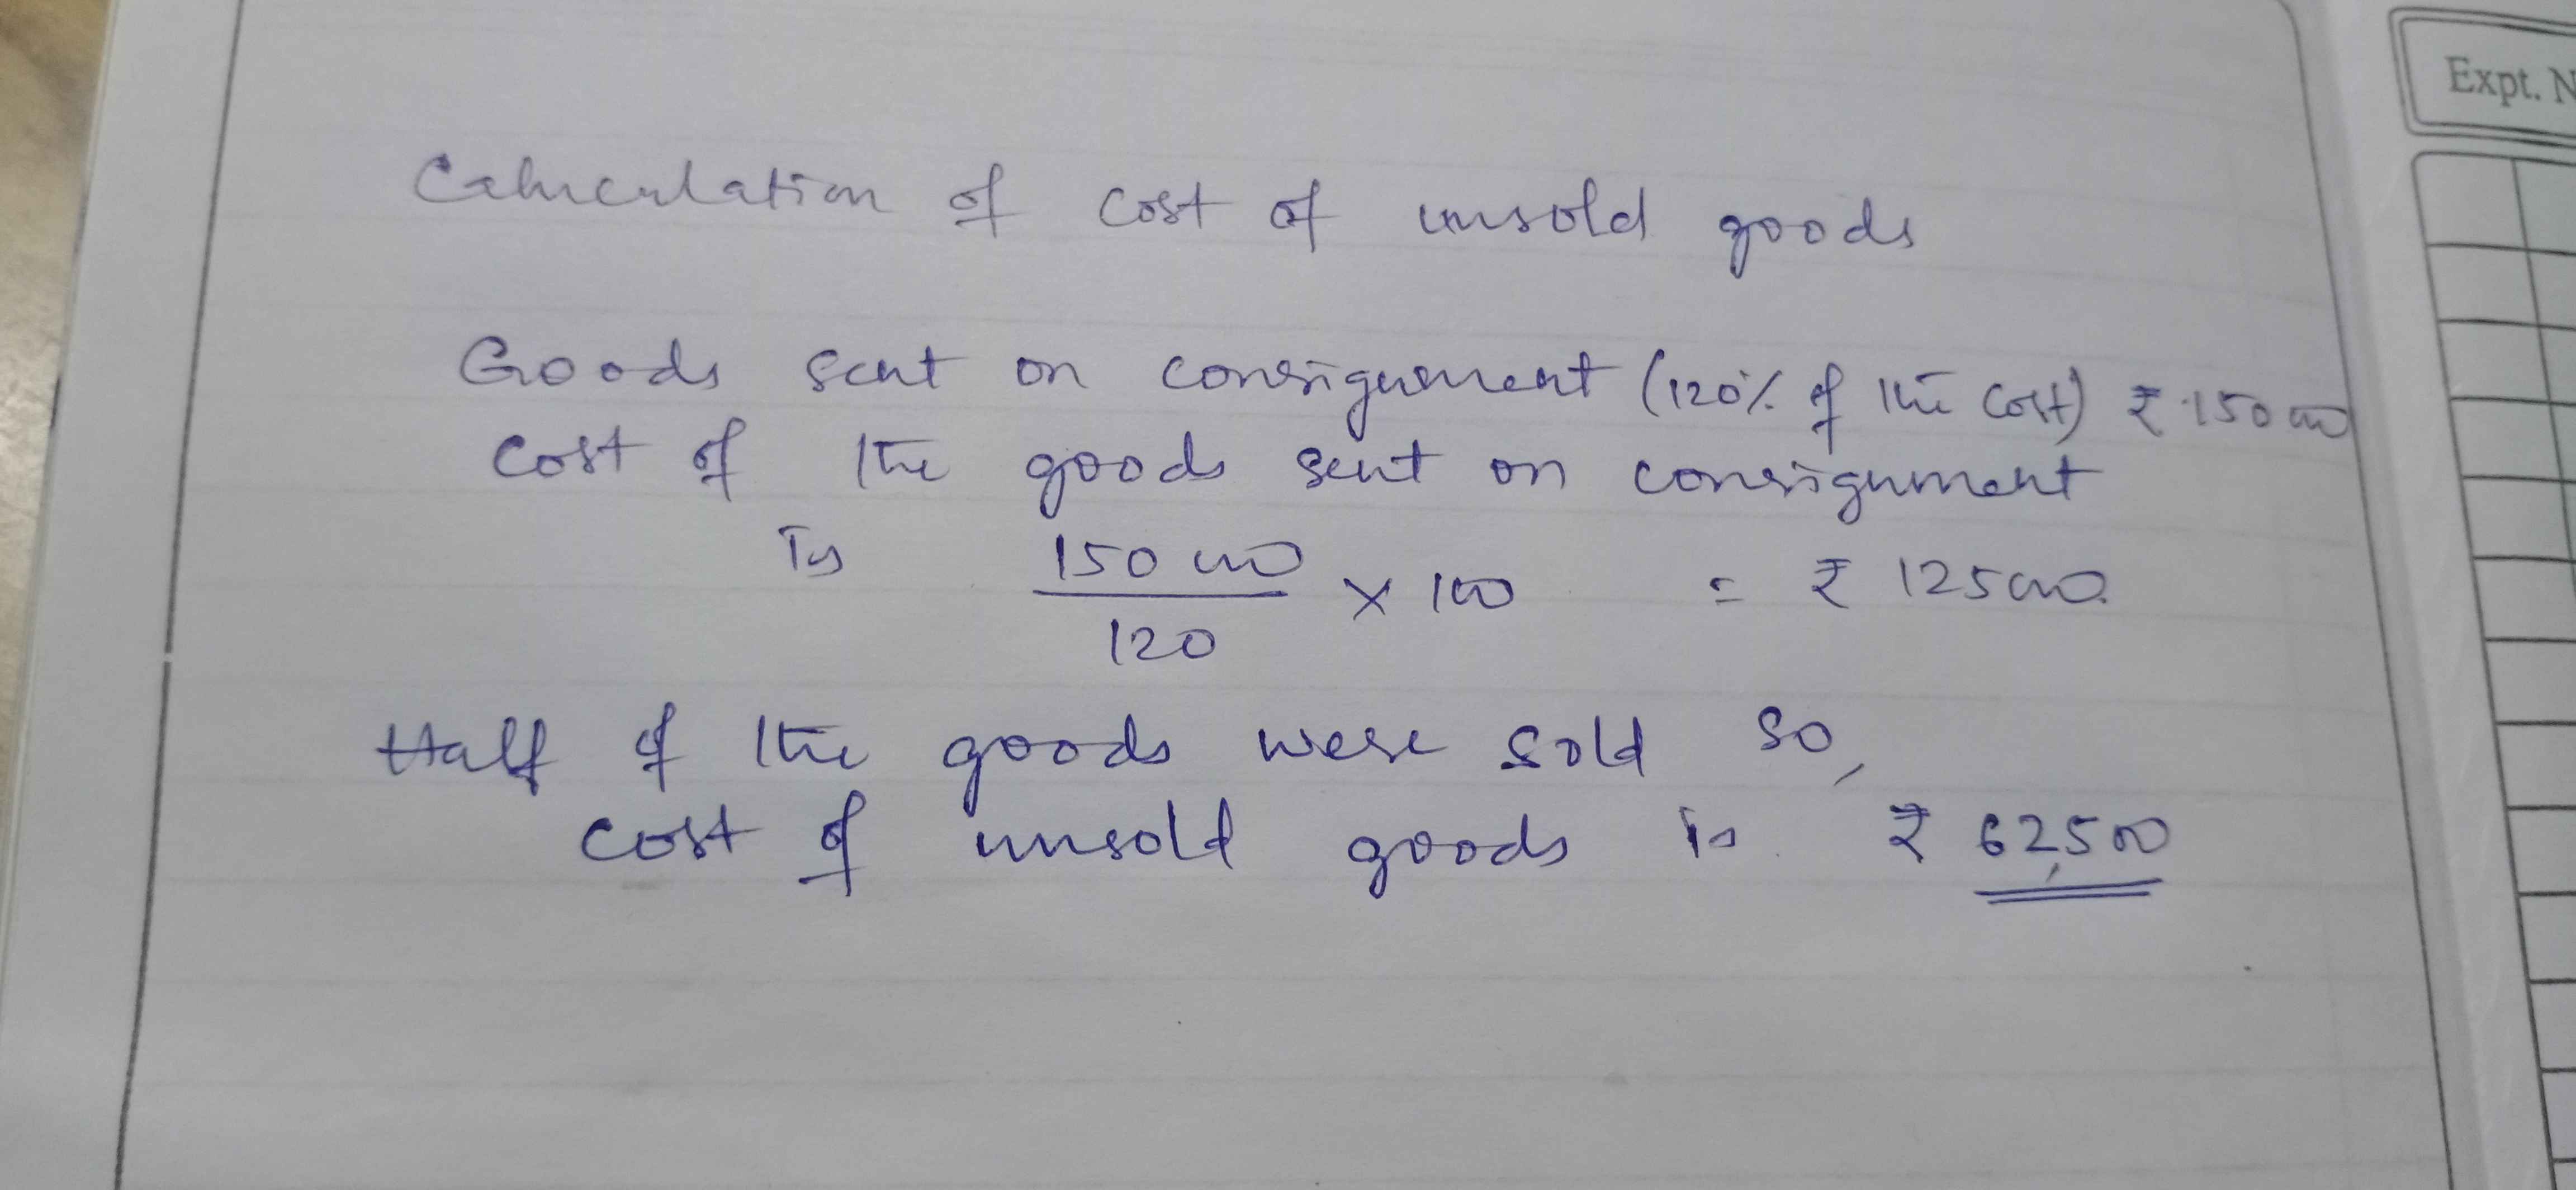 Expt. N
Calculation of cost of unsold goods
Goods sent on consignment (120% of the cost) ₹ 15000
cost of the goods sent on consignment
Is 15000 / 120 × 100 = ₹ 12500.
Half of the goods were sold so,
cost of unsold goods is ₹ 62,500